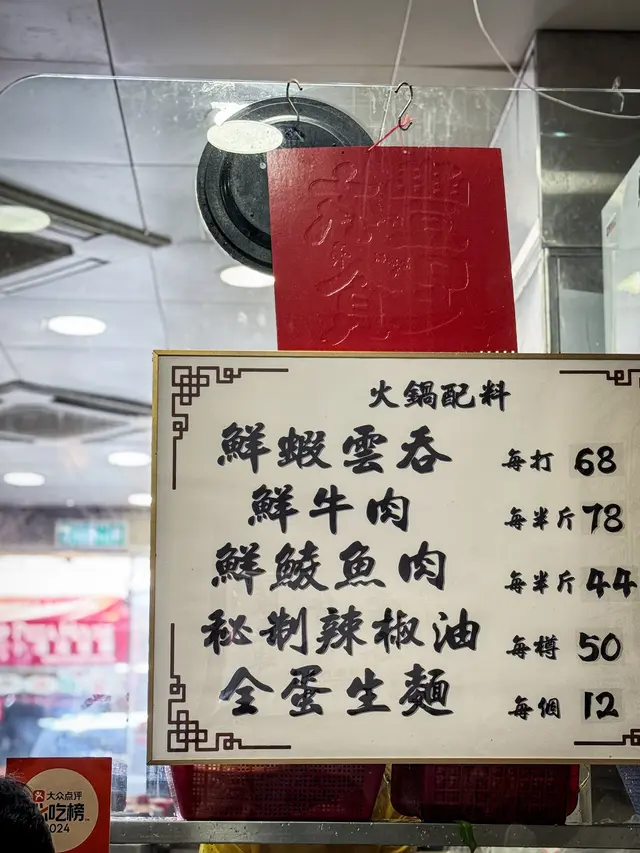 火鍋配料
鮮蝦雲吞 每打 68
鮮牛肉 每半斤 78
鮮鯪魚肉 每半斤 44
秘制辣椒油 每樽 50
全蛋生麵 每個 12
大众点评
吃榜
2024